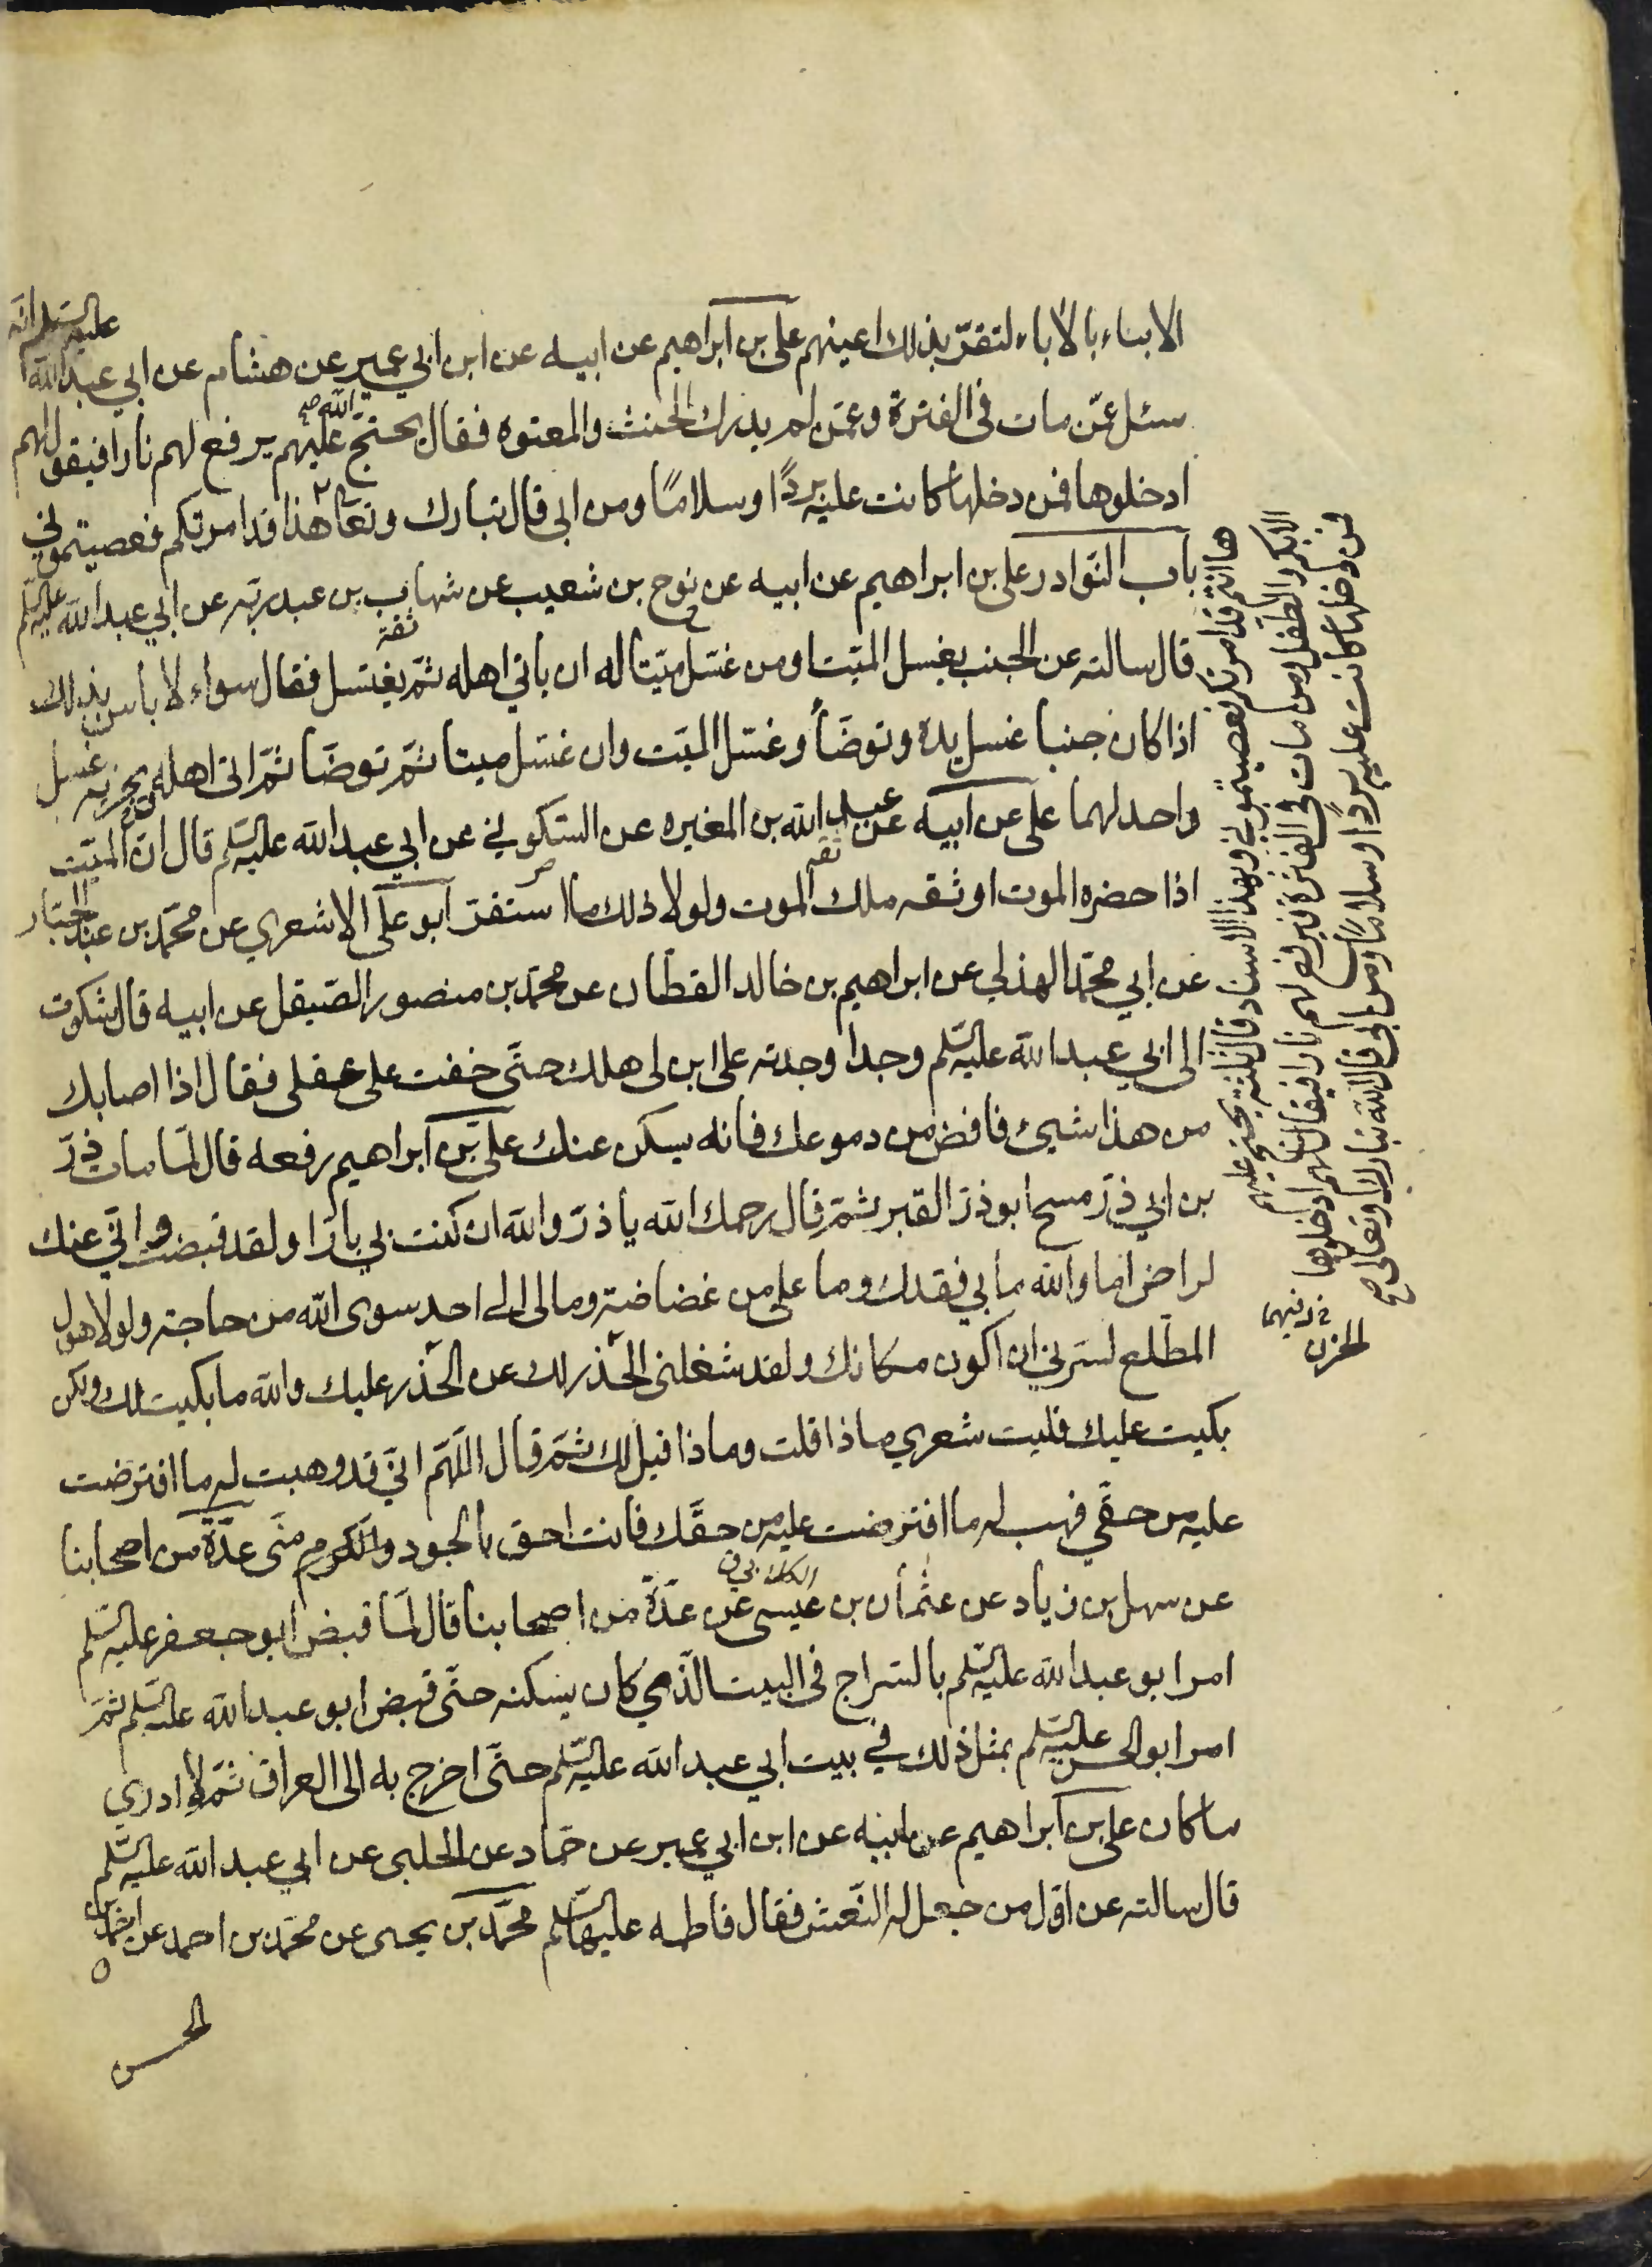 الابناء بالاباء لتقرّ بذلك اعينهم علی بن ابراهیم عن ابیه عن ابن ابي عمیر عن هشام عن ابي عبد الله علیه السّلم انّه
سئل عمّن مات فى الفترة وعمّن لم یدرك الحنث والمعتوه فقال یحتجّ الله علیهم یرفع لهم نارا فیقول لهم
ادخلوها فمن دخلها كانت علیه بردًا وسلامًا ومن ابى قال تبارك وتعالى هذا قد امرتكم فعصیتموني
باب النوادر علی بن ابراهیم عن ابیه عن نوح بن شعیب عن شهاب بن عبد ربّه عن ابي عبد الله علیه السّلم
ثقة
قال سالته عن الجنب یغسل المیّت او من غسّل میّتا له ان یاتي اهله ثمّ یغتسل فقال سواء لا باس بذلك
اذا كان جنبا غسل یده وتوضّأ وغسّل المیّت وان غسّل میتا ثمّ توضّا ثمّ اتى اهله ویجزیه غسل
واحد لهما علی عن ابیه عن عبد الله بن المغیره عن السّكوني عن ابي عبد الله علیه السّلم قال انّ المیّت
ثقه
اذا حضره الموت اوثقه ملك الموت ولولا ذلك ما استقرّ ابو علی الاشعري عن محمّد بن عبد الجبّار
عن ابي محمّد الهذلي عن ابراهیم بن خالد القطّان عن محمّد بن منصور الصّیقل عن ابیه قال شكوت
الى ابي عبد الله علیه السّلم وجدا وجدته على ابن لى هلك حتّى خفت على عقلى فقال اذا اصابك
من هذا شیئ فافض من دموعك فانه یسكن عنك علیّ بن ابراهیم رفعه قال لمّا مات ذرّ
بن ابي ذرّ مسح ابو ذرّ القبر ثمّ قال رحمك الله یا ذرّ والله ان كنت بي بارّا ولقد قبضت وانّي عنك
لراض اما والله ما بي فقدك وما علی من غضاضة وما لى الى احد سوى الله من حاجة ولولا هول
المطّلع لسرّني ان اكون مكانك ولقد شغلنى الحذر لك عن الحذر علیك والله ما بكیت لك ولكن
بكیت علیك فلیت شعري ماذا قلت وماذا قیل لك ثمّ قال اللّهمّ انّي قد وهبت له ما افترضت
علیه من حقّي فهب له ما افترضت علیه من حقّك فانت احق بالجود والكرم منّى عدّة من اصحابنا
عن سهل بن زیاد عن عثمان بن عیسى عن عدّة من اصحابنا قال لمّا قبض ابو جعفر علیه السّلم
امر ابو عبد الله علیه السّلم بالسّراج فى البیت الّذي كان یسكنه حتّى قبض ابو عبد الله علیه السّلم ثمّ
امر ابو الحسن علیه السّلم بمثل ذلك في بیت ابي عبد الله علیه السّلم حتّى اخرج به الى العراق ثمّ لا ادري
ما كان علی بن ابراهیم عن ابیه عن ابن ابي عمیر عن حمّاد عن الحلبى عن ابي عبد الله علیه السّلم
قال سالته عن اوّل من جعل له النّعش فقال فاطمه علیها السّلم محمّد بن یحیى عن محمّد بن احمد عن احمد بن
الحسن
ها انتم قد امرتكم فعصیتموني وبهذا الاسناد قال ثلثة یحتجّ علیهم
الابكم والطّفل ومن مات فى الفترة فیرفع لهم نارا فیقال لهم ادخلوها
فمن دخلها كانت علیه بردًا وسلامًا ومن ابى قال الله تبارك وتعالى صح
الحزن